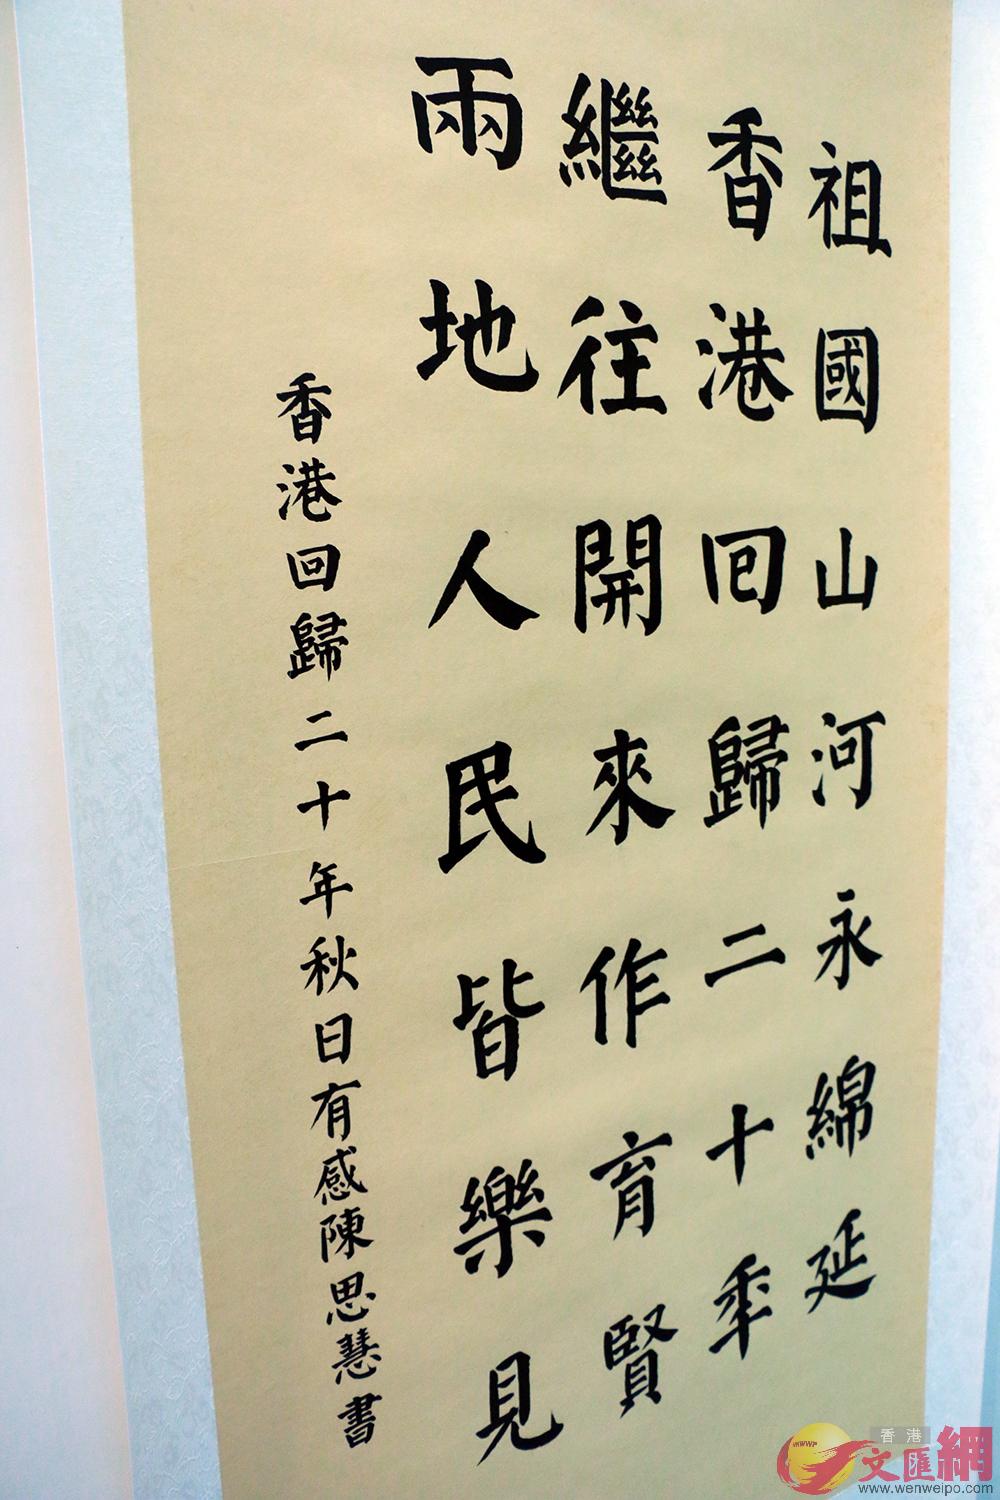 祖國山河永綿延
香港回歸二十年
繼往開來作育賢
兩地人民皆樂見
香港回歸二十年秋日有感陳思慧書
香港
文匯網
WWWP
www.wenweipo.com